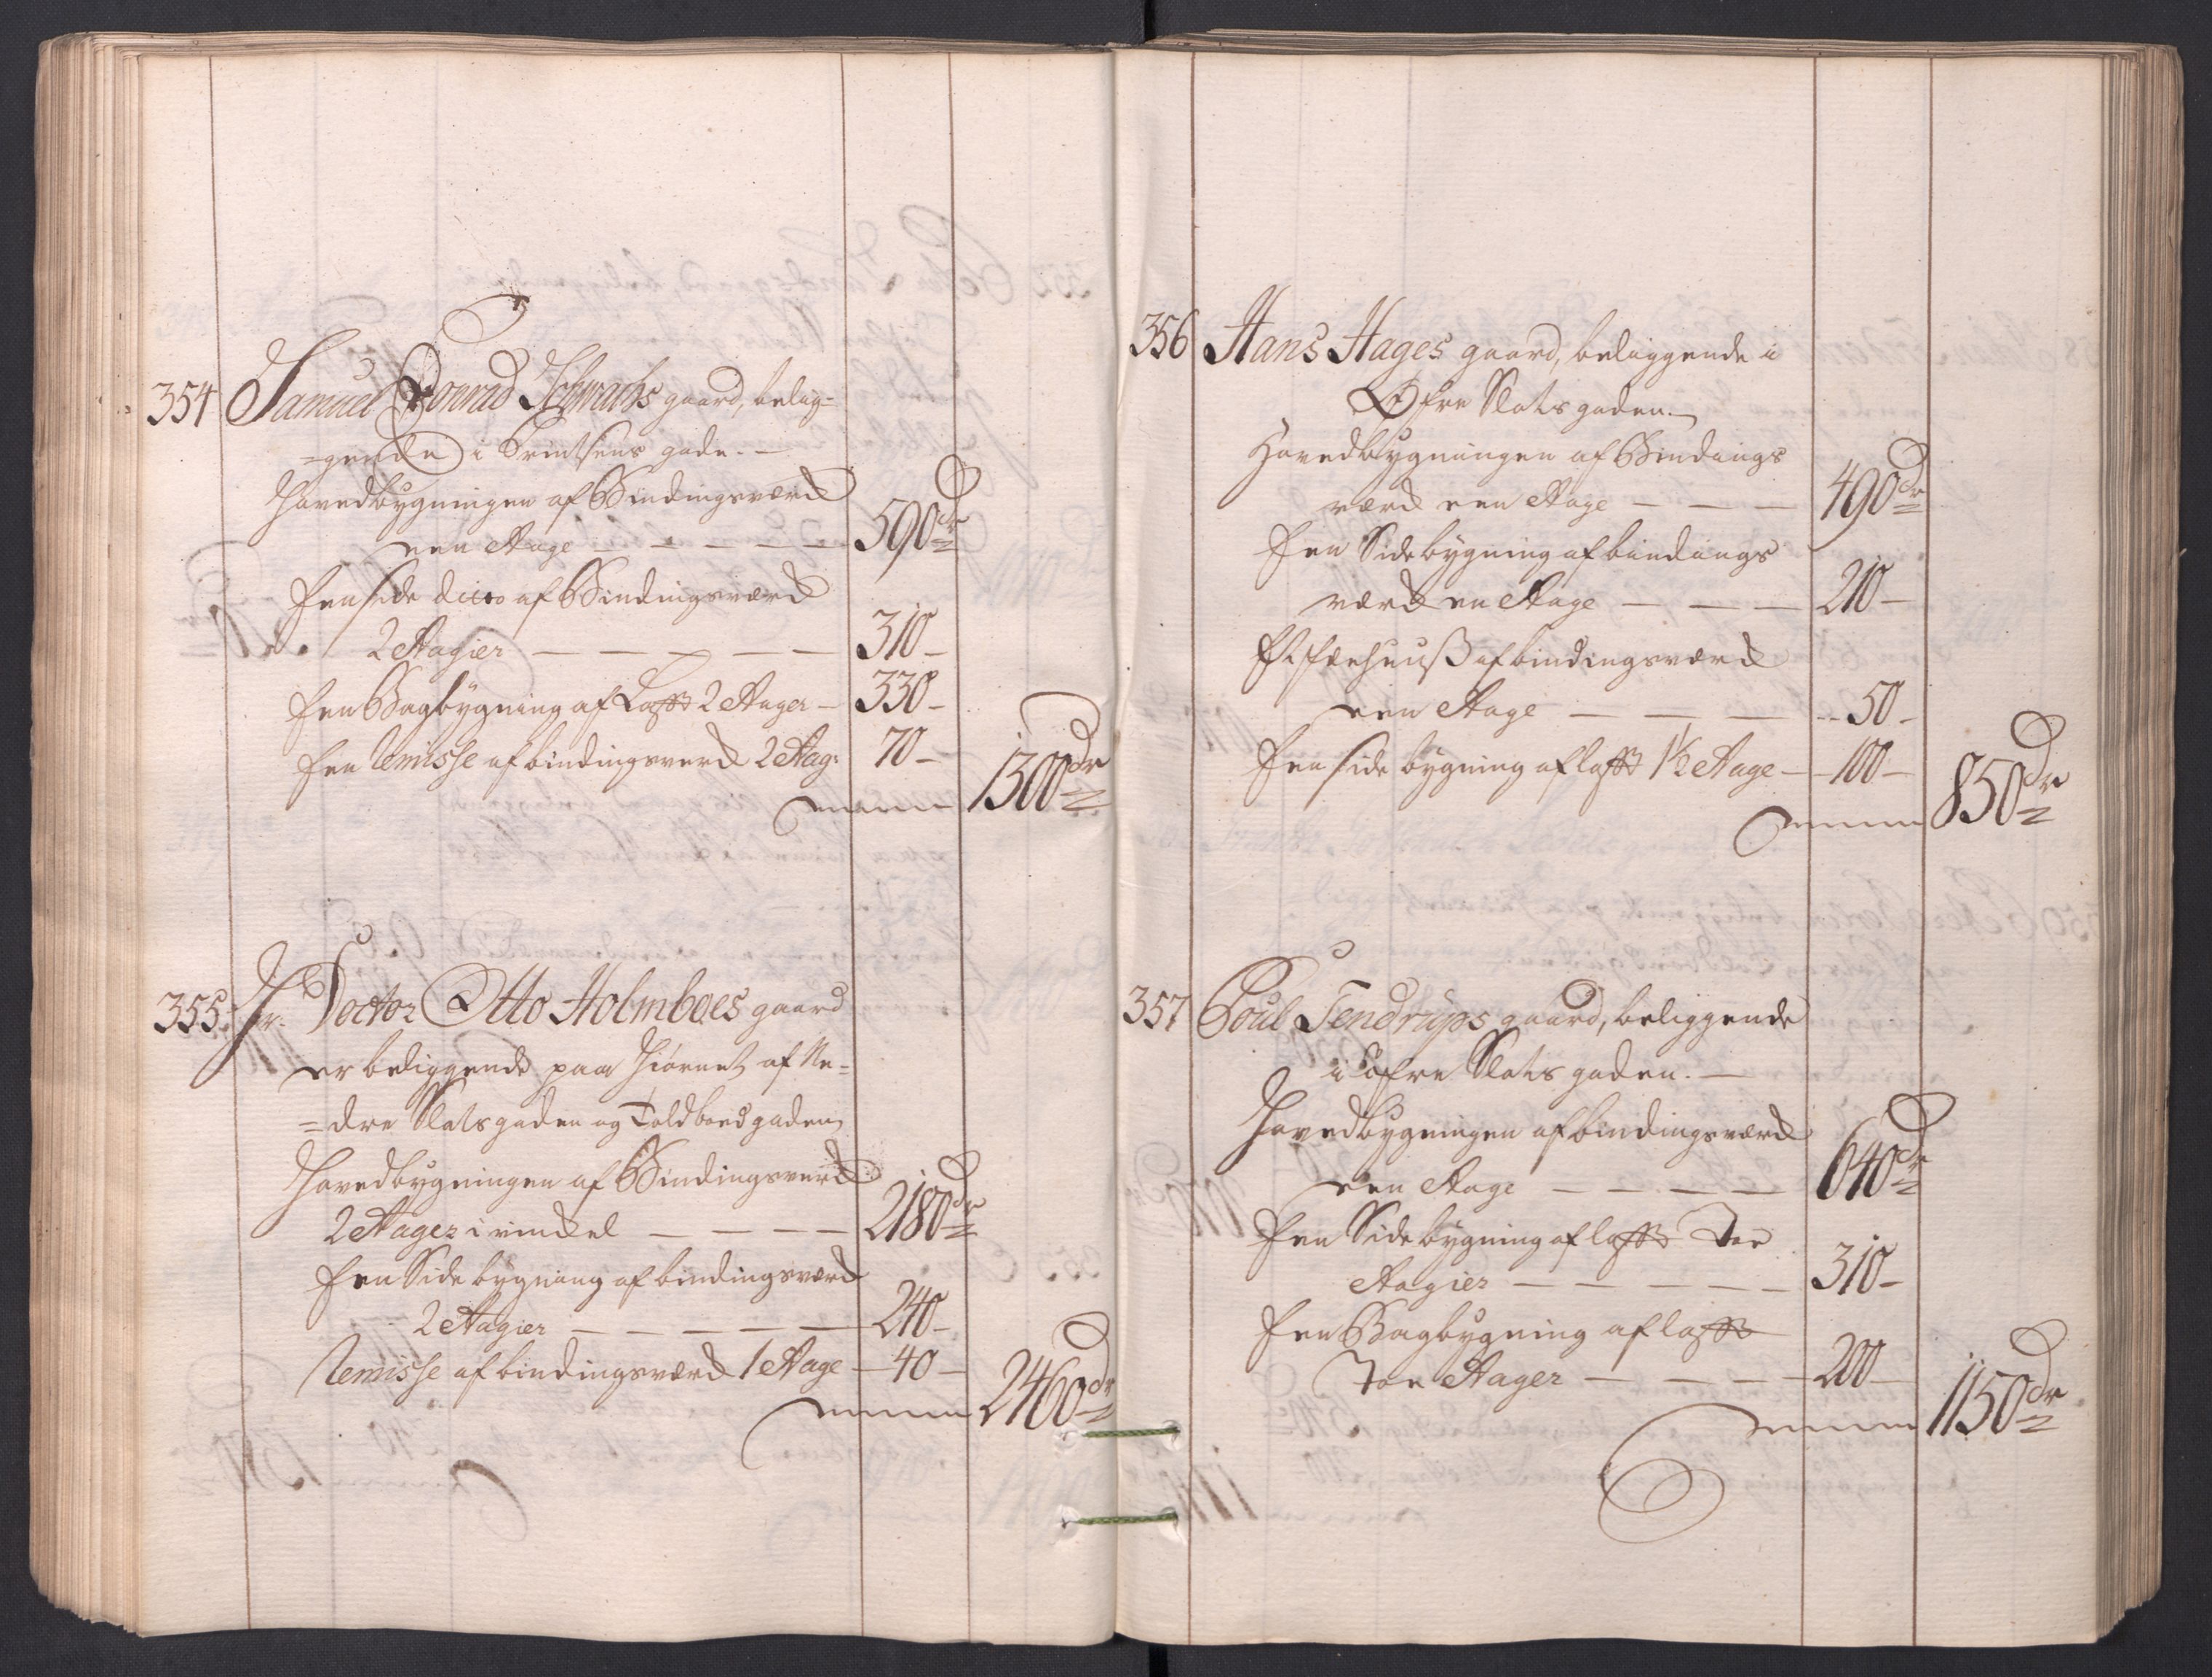 354 Samuel Conrad Schwachs gaard, belig=
=gende i Printsens gade. —
Hovedbygningen af Bindingsværk
een Etage — — — — — 590 dr
Een side ditto af Bindingsværk
2 Etagier — — — — — 310 —
Een Bagbygning af Laft 2 Etager — 330 —
Een Remisse af bindingsverk 2 Etag: 70 —
1300 dr
355. Hr. Doctor Otto Holmboes gaard
er beliggende paa Hiørnet af Ne=
=dre Slotsgaden og Toldboed gaden
Hovedbygningen af Bindingsverk
2 Etager i vinckel — — — — 2180 dr
Een Side bygning af bindingsværk
2 Etagier — — — — — 240 —
Remisse af bindingsværk 1 Etage — 40 —
2460 dr
356 Hans Hages gaard, beliggende i
Øfre Slots gaden. —
Hovedbygningen af Bindings
værk een Etage — — — 490 dr
Een Sidebygning af bindings
værk en Etage — — — 210 —
Et Fæehuuß af bindingsværk
een Etage — — — 50 —
Een side bygning af laft 1½ Etage — 100 —
850 dr
357 Poul Tendrups gaard, beliggende
i Øfre Slots gaden. —
Hovedbygningen af bindingsværk
een Etage — — — — 640 dr
Een Sidebygning af laft Toe
Etagier — — — — — 310 —
Een Bagbygning af laft
Toe Etager — — — — 200
1150 dr